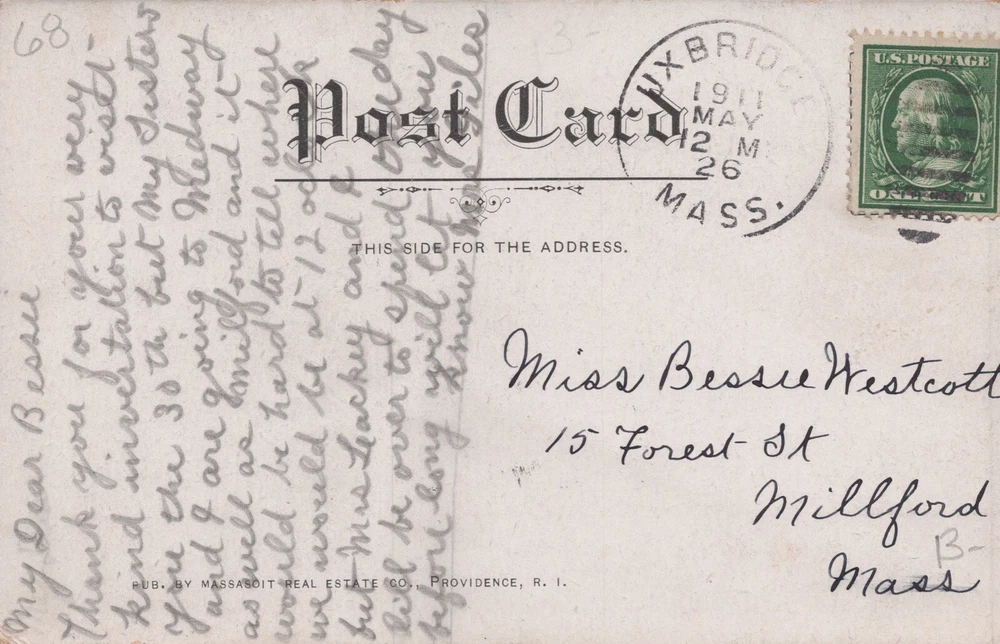 68
Post Card
THIS SIDE FOR THE ADDRESS.
UXBRIDGE
1911
MAY
12 M
26
MASS.
U.S. POSTAGE
ONE CENT
My Dear Bessie
Thank you for your very
kind invertation to visit
you the 30th but My Sister
and I are going to Medway
as well as Milford and it
would be hard to tell where
we would be at 12 oclock
but Mrs and I
will be over to spend the day
before long will let you
know Mrs
Miss Bessie Westcott
15 Forest St
Millford
Mass
B-
PUB. BY MASSASOIT REAL ESTATE CO., PROVIDENCE, R. I.